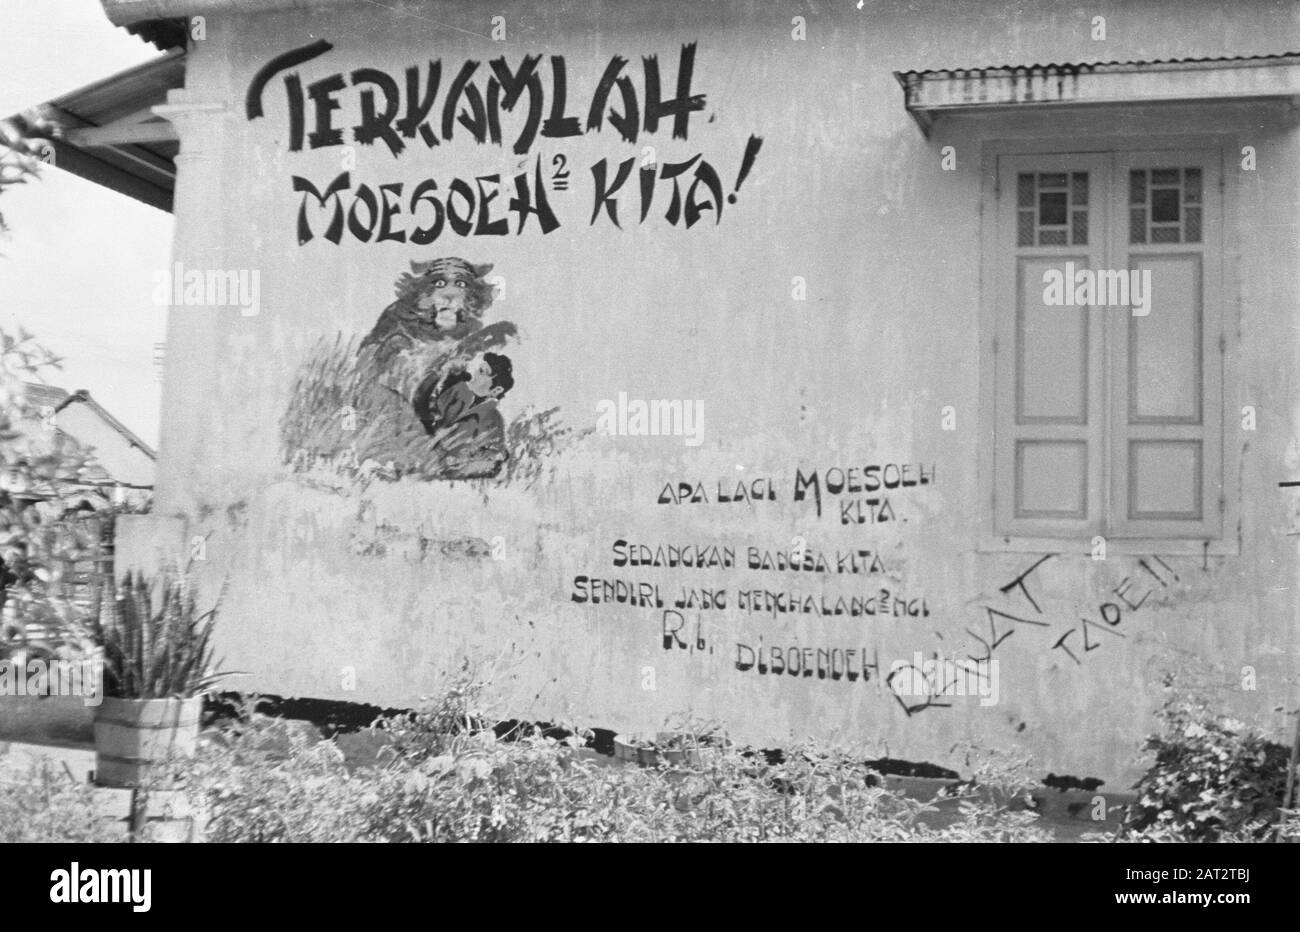 TERKAMLAH
MOESOEH² KITA!
APA LAGI MOESOEH
KITA.
SEDANGKAN BANGSA KITA
SENDIRI JANG MENGHALANG²NGI
R.I. DIBOENOEH
RAJAT
TAOE!!
alamy
Image ID: 2AT2TBJ
www.alamy.com